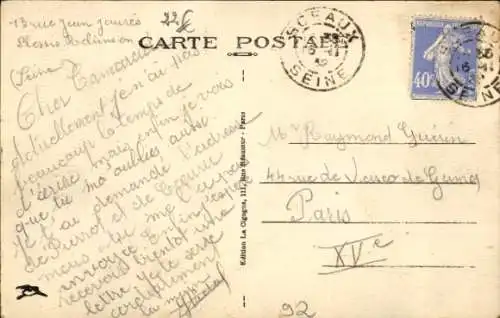 13 rue Jean Jaurès
Plessis Robinson
(Seine)
22
CARTE POSTALE
SCEAUX
SEINE
40c
SCEAUX
SEINE
Cher Camarade
Actuellement je n'ai pas
beaucoup le temps de
d'écrire mais enfin je vois
que tu m'a oublies aussi
Je t'ai demandé l'adresse
de Pierrot et de
mais tu me l'a pas
envoyé. Enfin j'espère
recevoir bientôt une
lettre. Je te serre
cordialement
la
Edition La Cigogne, 111, Rue Réaumur - Paris
Mr Raymond Guérin
44 rue de Vasco de Gama
Paris
XVe
92